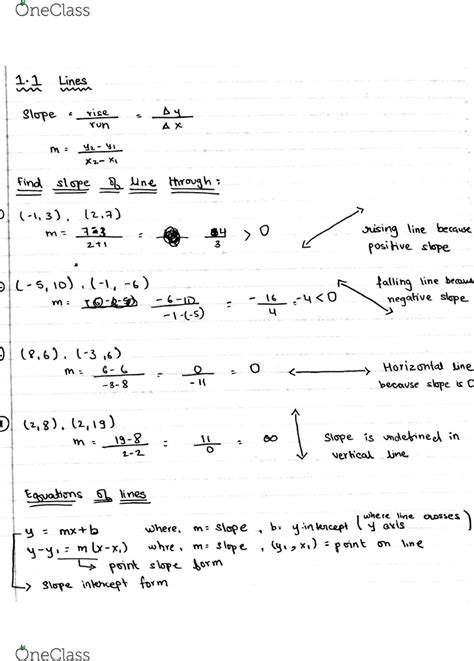 OneClass
1.1 Lines
Slope = rise/run = Δy/Δx
m = y₂-y₁/x₂-x₁
Find slope of line through:
(-1,3), (2,7)
m = 7-3/2+1 = 4/3 > 0
rising line because
positive slope
(-5,10), (-1,-6)
m = -6-10/-1-(-5) = -16/4 = -4 < 0
falling line because
negative slope
(8,6), (-3,6)
m = 6-6/-3-8 = 0/-11 = 0
Horizontal line
because slope is 0
(2,8), (2,19)
m = 19-8/2-2 = 11/0 = ∞
Slope is undefined in
vertical line
Equations of lines
y = mx+b where, m= slope, b= y-intercept (where line crosses y axis
y-y₁ = m(x-x₁) whre, m= slope, (y₁,x₁) = point on line
point slope form
slope intercept form
OneClass